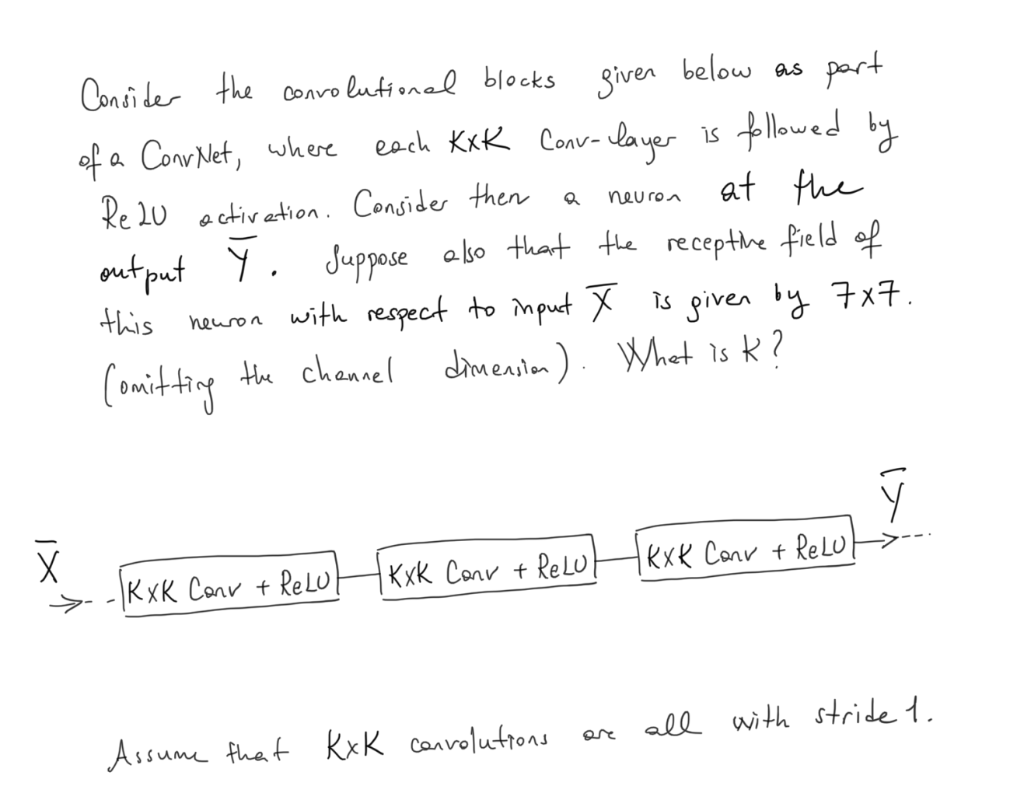 Consider the convolutional blocks given below as part
of a ConvNet, where each KxK Conv-layer is followed by
ReLU activation. Consider then a neuron at the
output Y̅. Suppose also that the receptive field of
this neuron with respect to input X̅ is given by 7x7.
(omitting the channel dimension). What is K?
Y̅
X̅
KxK Conv + ReLU KxK Conv + ReLU KxK Conv + ReLU
Assume that KxK convolutions are all with stride 1.